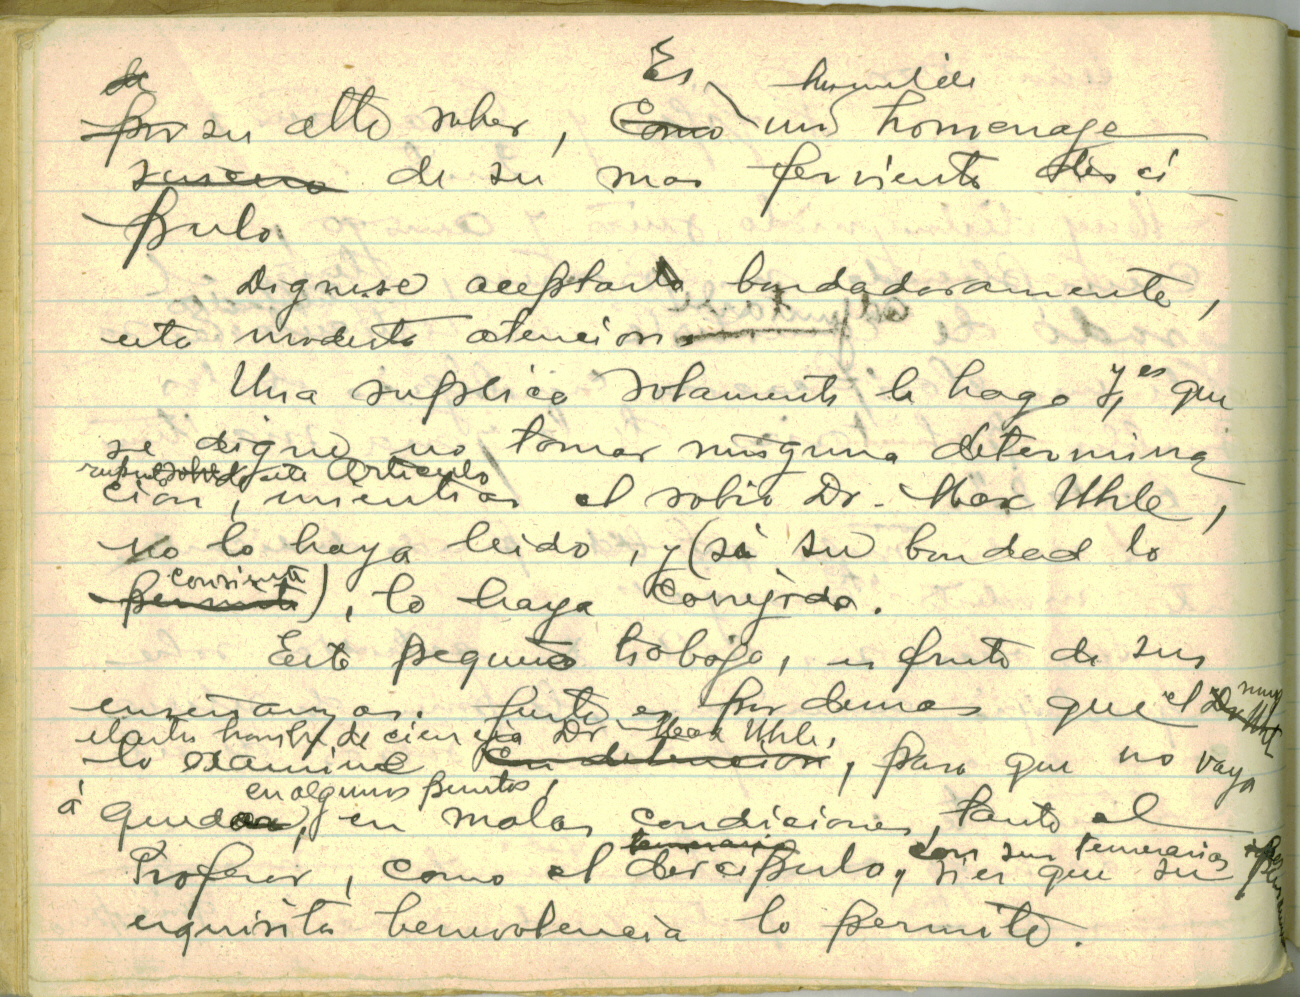 de Es, humilde
por su alto saber, Como un homenage
sincero de su mas ferviente disci-
pulo.
Dignese aceptarlo bondadosamente,
esta modesta atencion.
Una suplica solamente le hago y, es que
se digne no tomar ninguna determina
respecto de este Articulo
cion, mientras el sabio Dr. Max Uhle,
no lo haya leido, y (si su bondad lo
consienta
permite), lo haya correjido.
Este pequeño trabajo, es fruto de sus
enseñanzas. Justo es por demas que el Dr Uhle muy
ilustre hombre de ciencia Dr. Max Uhle,
lo examine con detencion, para que no vaya
en algunos puntos,
á quedar, en malas condiciones, tanto el
temerario con sus temerarias
Profesor, como el discipulo, si es que su
exquisita benevolencia lo permite.